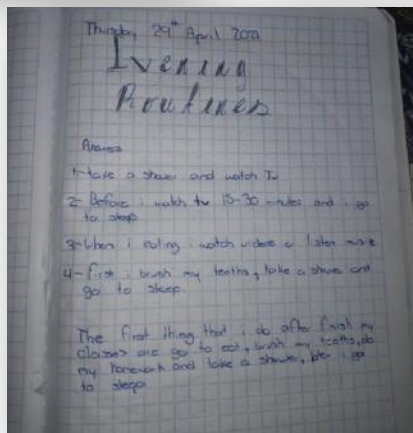 Thursday 29th April 2021
Ivening
Routines
Answers
1-take a shower and watch Tv
2- Before i watch tv 15-30 minutes and i go
to sleep
3-When i eating i watch videos o listen music
4-First i brush my teeths, take a shower and
go to sleep.
The first thing that i do after finish my
classes are go to eat, brush my teeths, do
my homework and take a shower, i go
to sleep